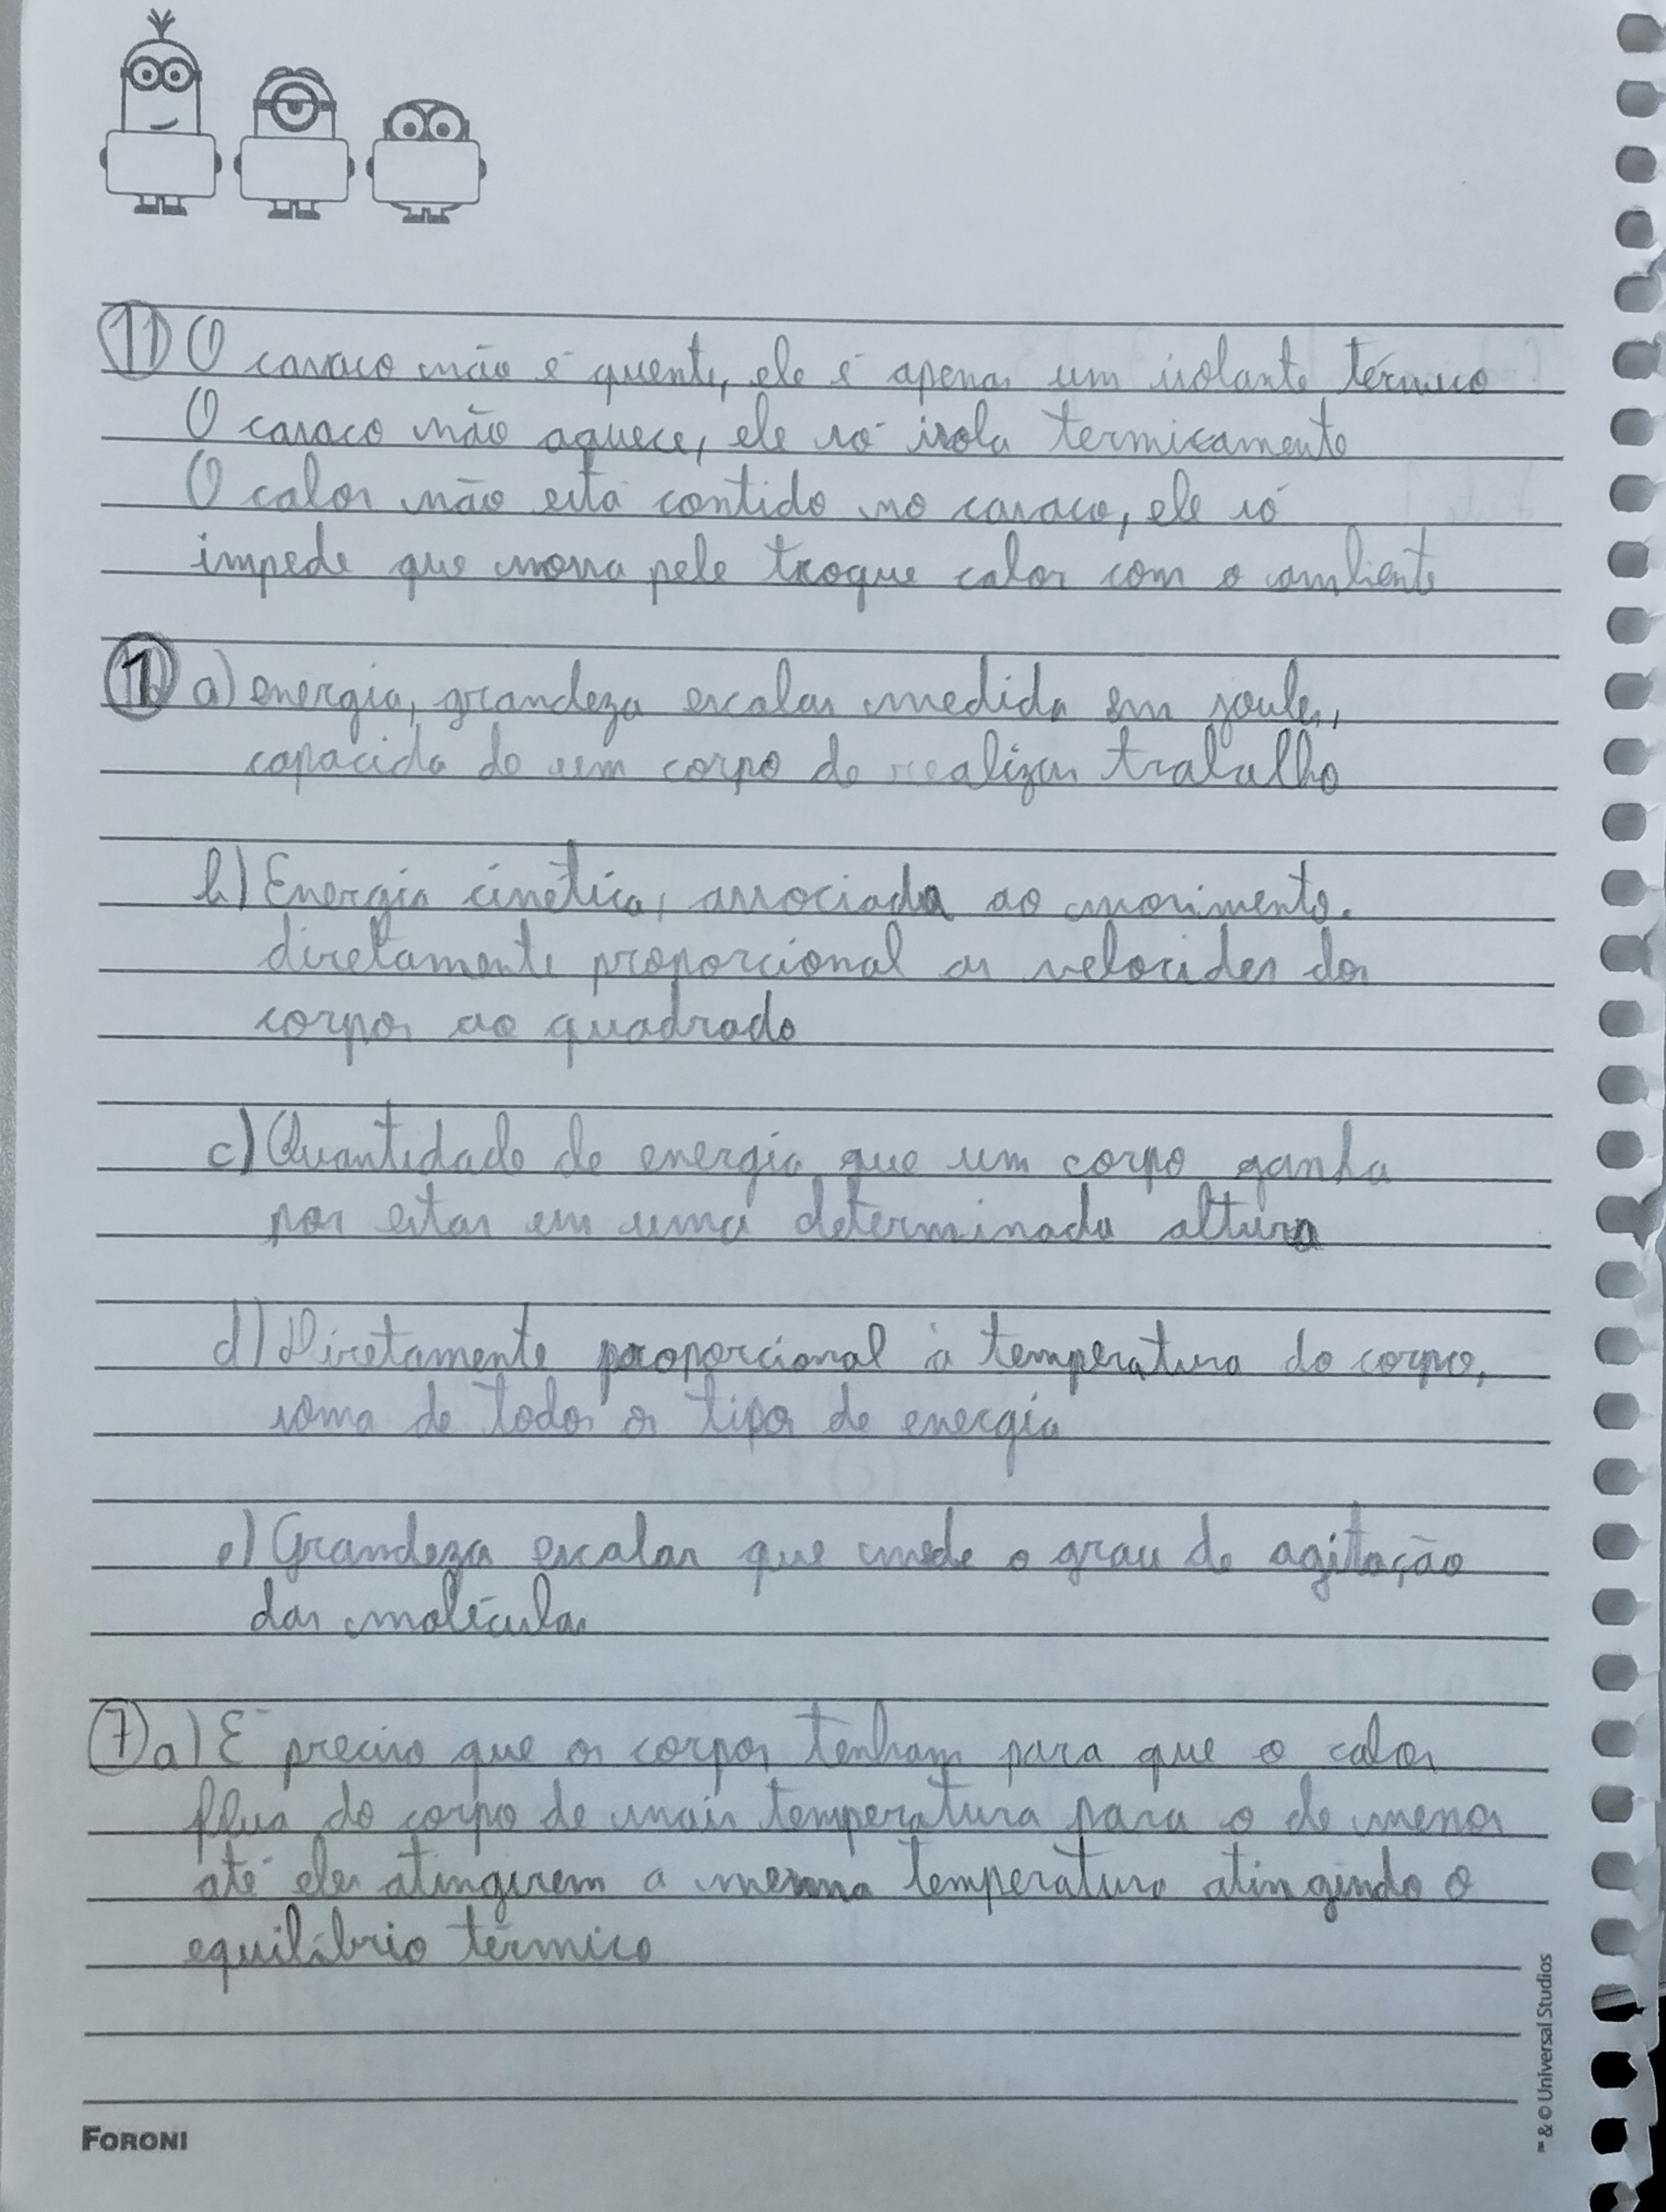 11) O casaco não é quente, ele é apenas um isolante térmico
O casaco não aquece, ele só isola termicamente
O calor não está contido no casaco, ele só
impede que nossa pele troque calor com o ambiente
1 a) energia, grandeza escalar medida em joules,
capacida de um corpo de realizar trabalho
b) Energia cinética, associada ao movimento.
diretamente proporcional as velocides dos
corpos ao quadrado
c) Quantidade de energia que um corpo ganha
por estar em uma determinada altura
d) Diretamente proporcional à temperatura do corpo,
soma de todos os tipos de energia
e) Grandeza escalar que mede o grau de agitação
das moléculas
7 a) É preciso que os corpos tenham para que o calor
flua do corpo de mais temperatura para o de menor
até eles atingirem a mesma temperatura atingindo o
equilíbrio térmico
FORONI
™ & © Universal Studios